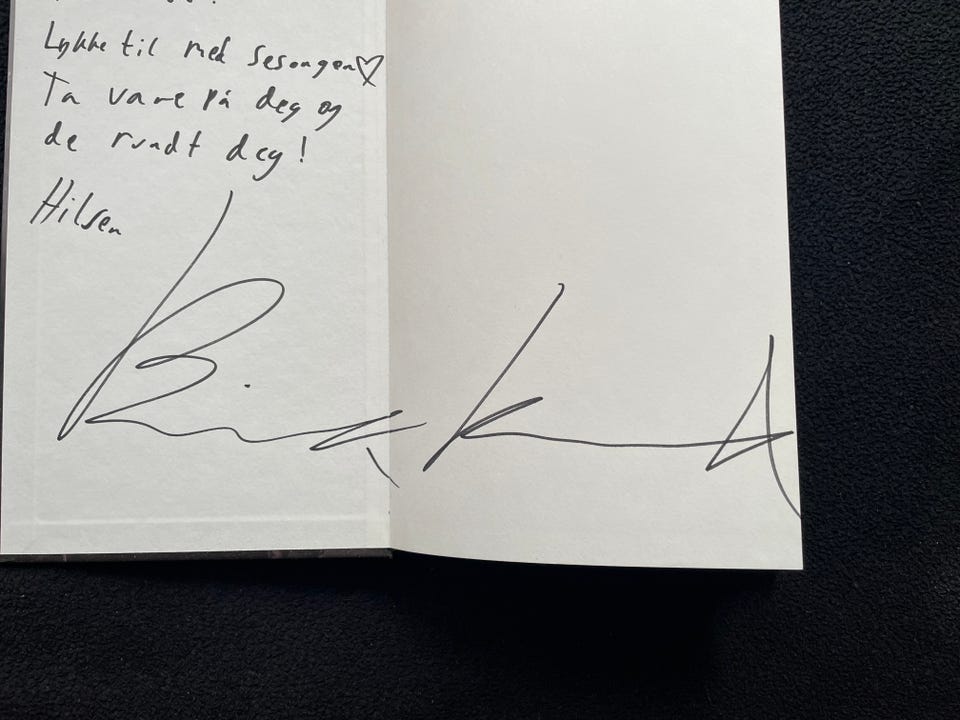 Lykke til med sesongen♡
Ta vare på deg og
de rundt deg!
Hilsen